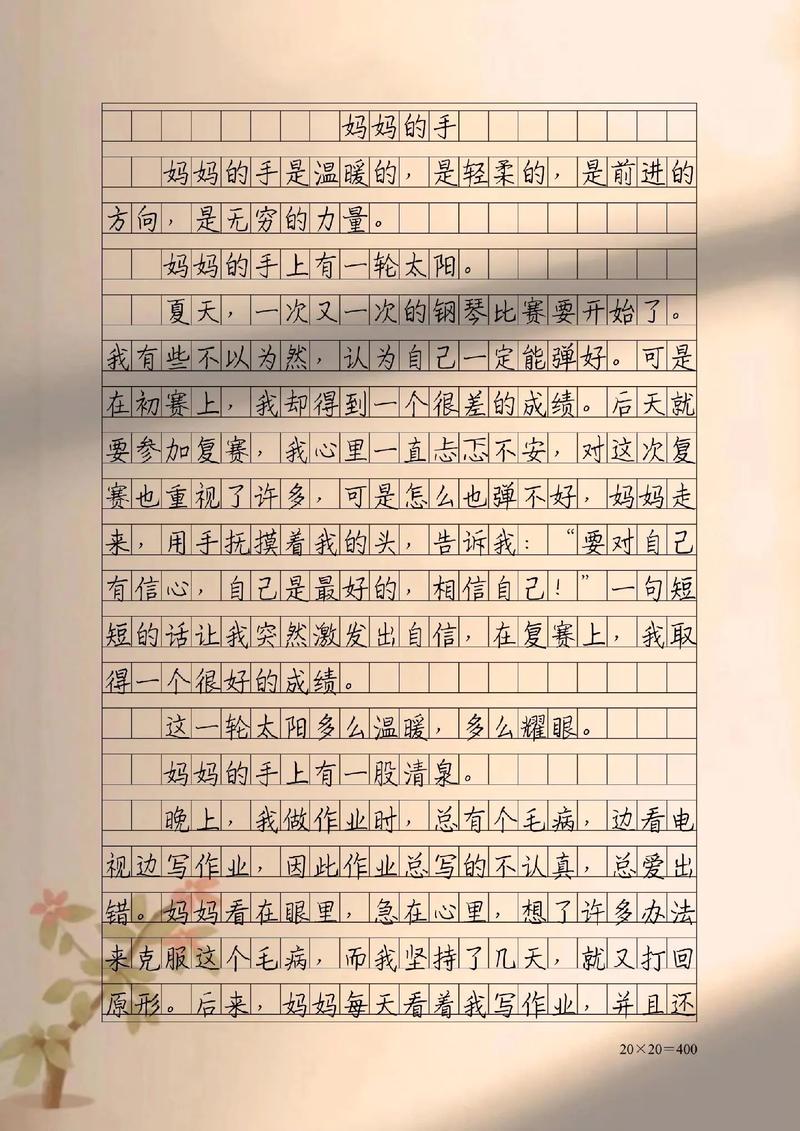 妈妈的手
妈妈的手是温暖的，是轻柔的，是前进的
方向，是无穷的力量。
妈妈的手上有一轮太阳。
夏天，一次又一次的钢琴比赛要开始了。
我有些不以为然，认为自己一定能弹好。可是
在初赛上，我却得到一个很差的成绩。后天就
要参加复赛，我心里一直忐忑不安，对这次复
赛也重视了许多，可是怎么也弹不好，妈妈走
来，用手抚摸着我的头，告诉我：“要对自己
有信心，自己是最好的，相信自己！”一句短
短的话让我突然激发出自信，在复赛上，我取
得一个很好的成绩。
这一轮太阳多么温暖，多么耀眼。
妈妈的手上有一股清泉。
晚上，我做作业时，总有个毛病，边看电
视边写作业，因此作业总写的不认真，总爱出
错。妈妈看在眼里，急在心里，想了许多办法
来克服这个毛病，而我坚持了几天，就又打回
原形。后来，妈妈每天看着我写作业，并且还
20×20=400